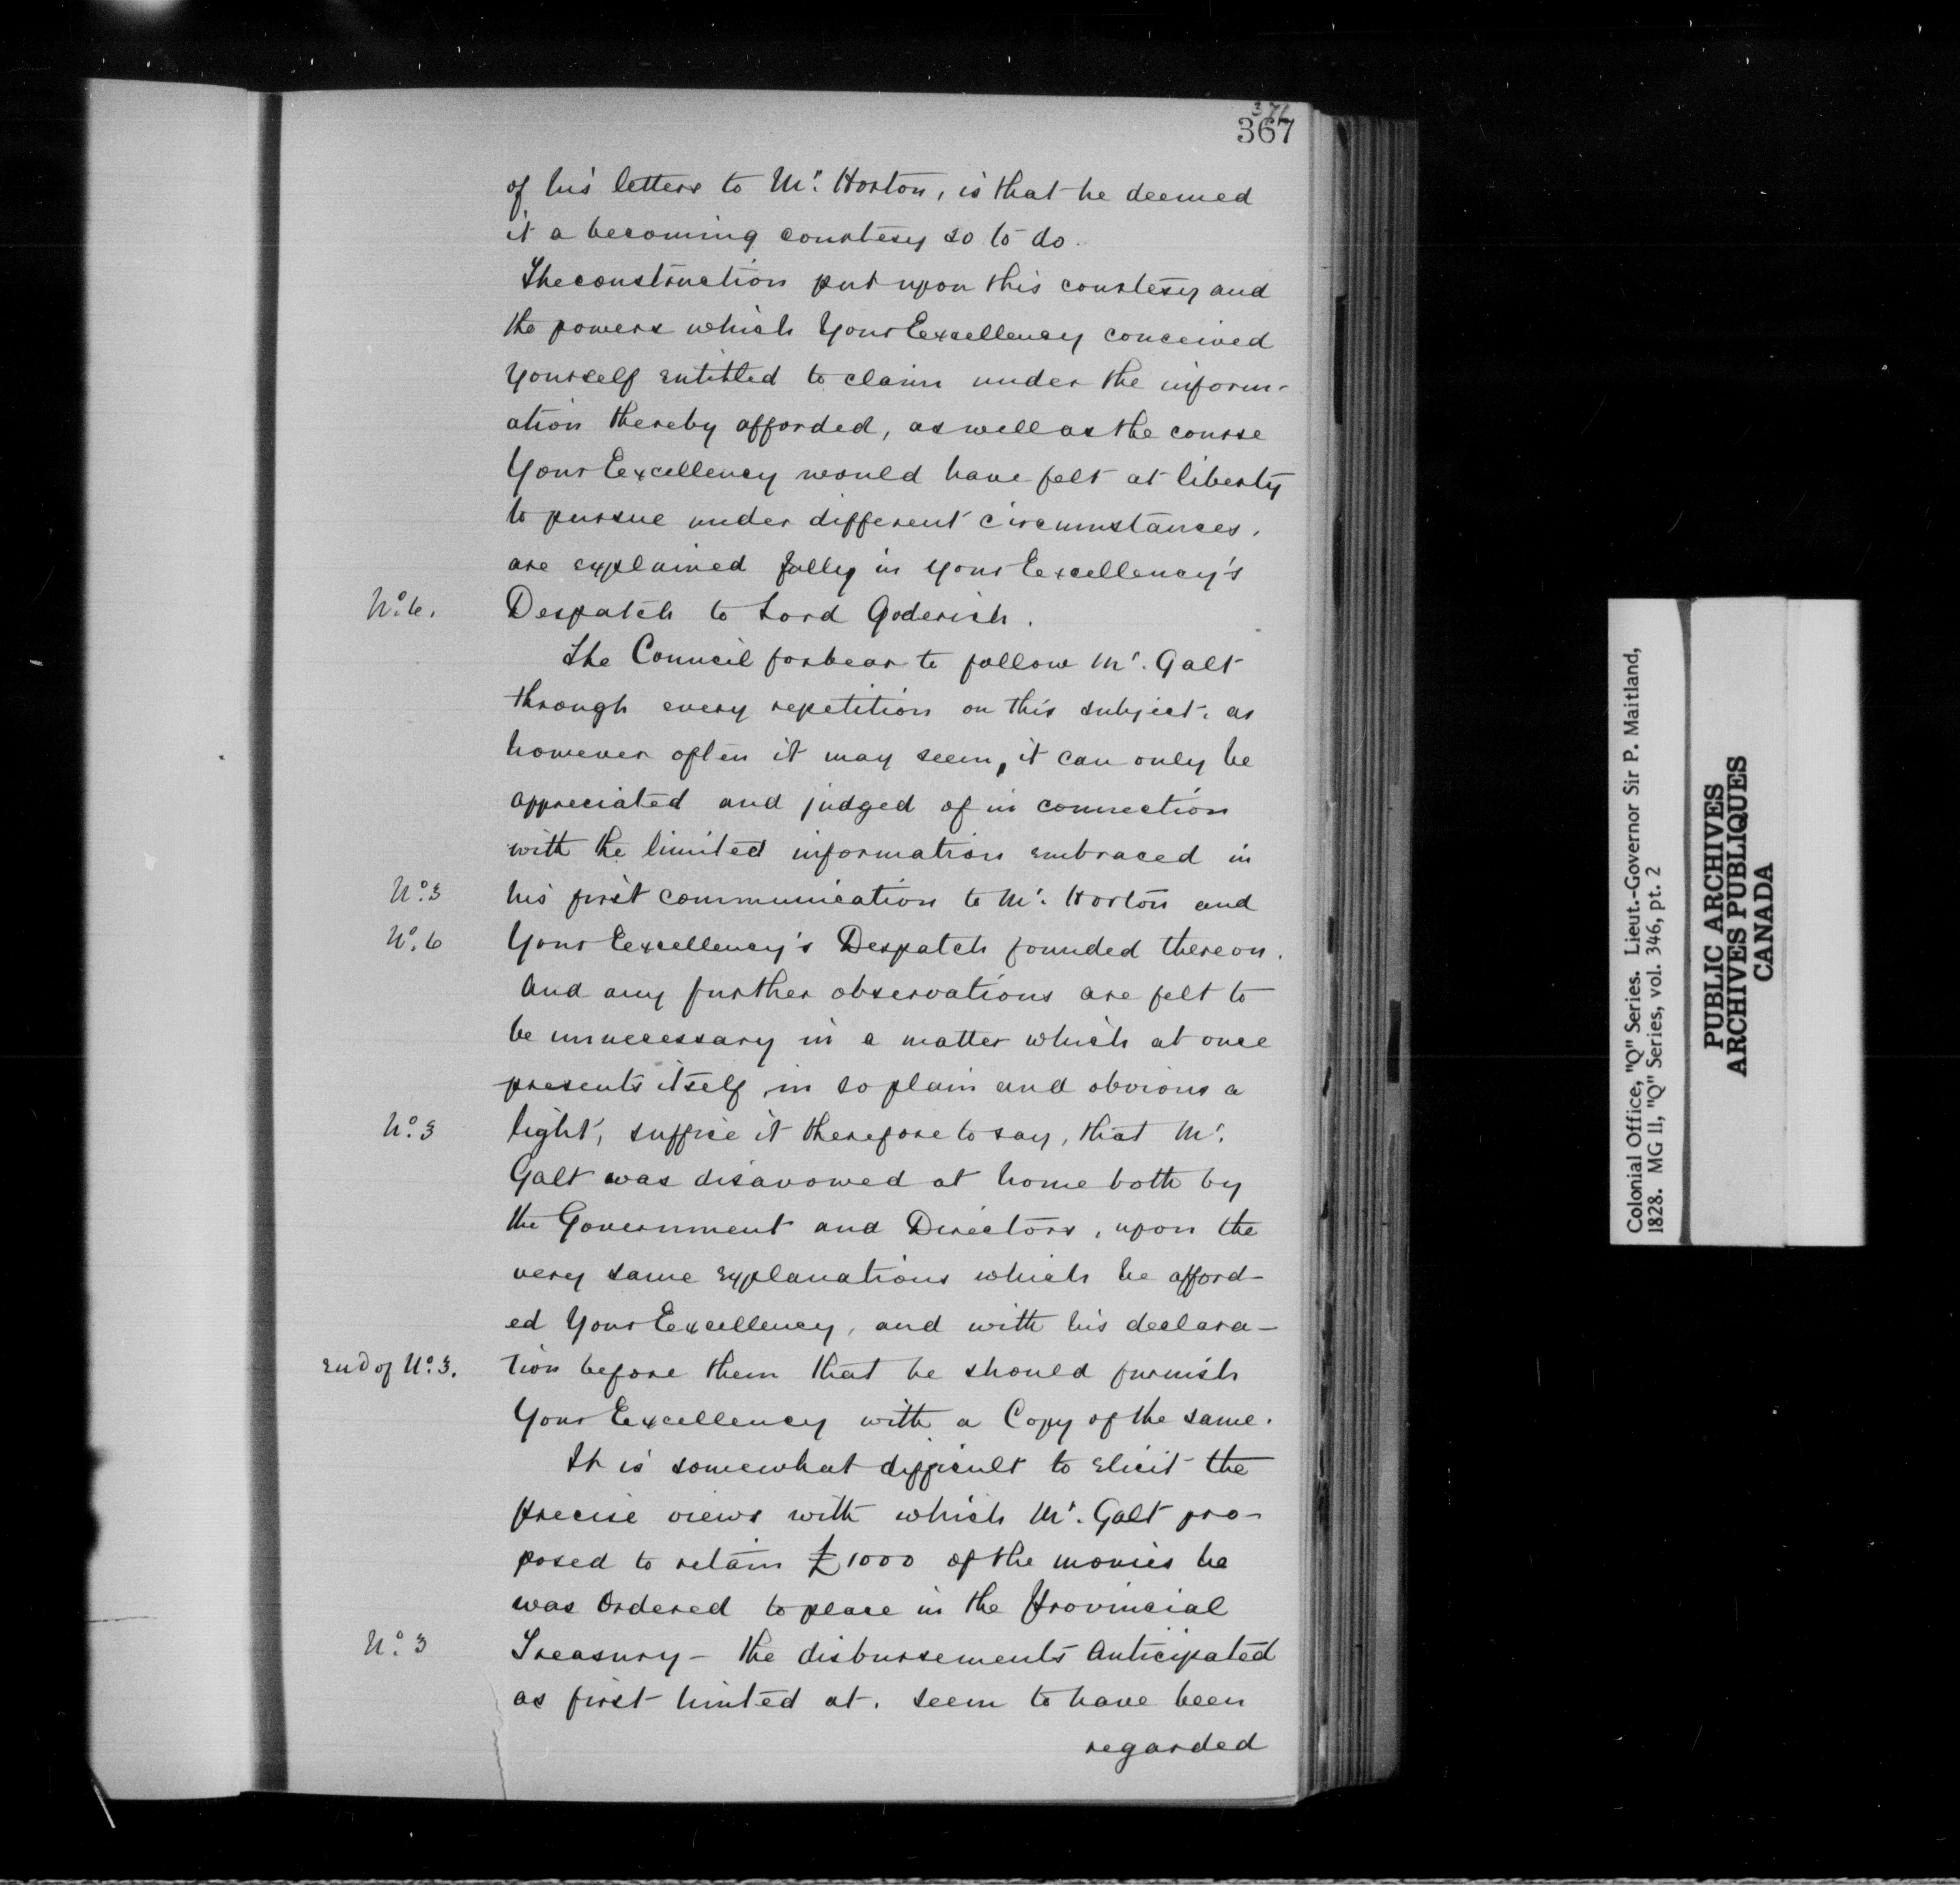 376
367
of his letters to Mr. Horton, is that he deemed
it a becoming courtesy so to do.
The construction put upon this courtesy and
the powers which Your Excellency conceived
Yourself entitled to claim under the inform-
ation thereby afforded, as well as the course
Your Excellency would have felt at liberty
to pursue under different circumstances,
are explained fully in your Excellency's
No. 6. Despatch to Lord Goderich.
The Council forbear to follow Mr. Galt
through every repetition on this subject, as
however often it may seem, it can only be
appreciated and judged of in connection
with the limited information embraced in
No. 3 his first communication to Mr. Horton and
No. 6 Your Excellency's Despatch founded thereon.
And any further observations are felt to
be unnecessary in a matter which at once
presents itself in so plain and obvious a
No. 3 light, suffice it therefore to say, that Mr.
Galt was disavowed at home both by
the Government and Directors, upon the
very same explanations which he afford-
ed Your Excellency, and with his declara-
End of No. 3. tion before them that he should furnish
Your Excellency with a Copy of the same.
It is somewhat difficult to elicit the
precise views with which Mr. Galt pro-
posed to retain £1000 of the monies he
was Ordered to place in the Provincial
No. 3 Treasury - the disbursements Anticipated
as first hinted at, seem to have been
regarded
Colonial Office, "Q" Series. Lieut.-Governor Sir P. Maitland,
1828. MG 11, "Q" Series, vol. 346, pt. 2
PUBLIC ARCHIVES
ARCHIVES PUBLIQUES
CANADA